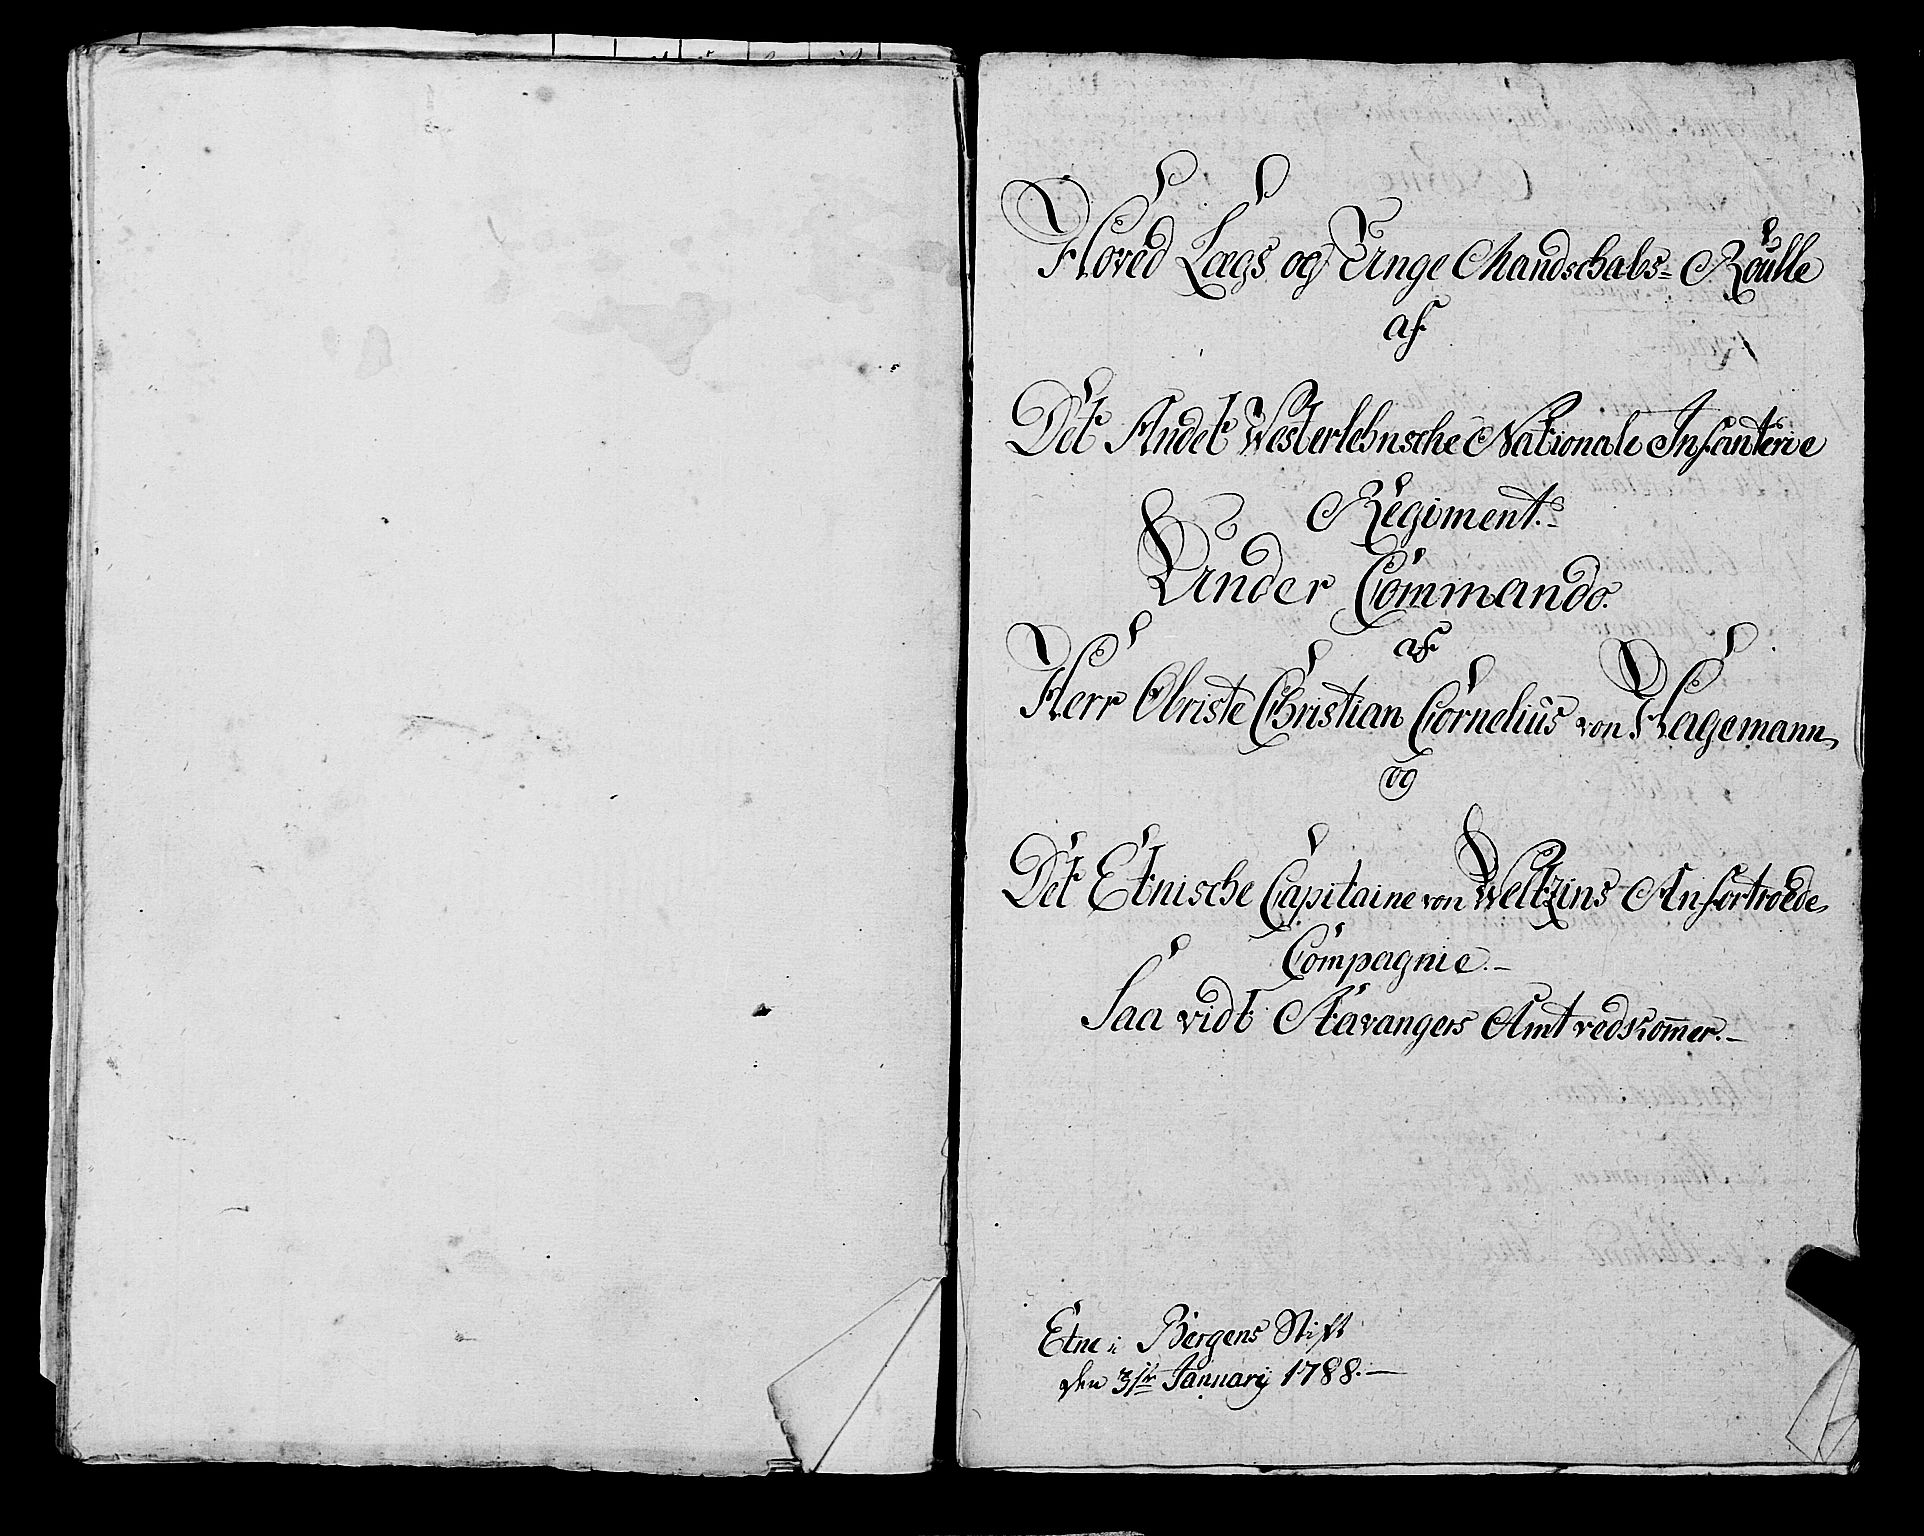 Hoved Lægs og Unge Mandschabs= Roulle
af
Det Andet Westerlehnsche Nationale Infanterie
Regiment.
Under Commando.
af
Herr Obriste Christian Cornelius von Hagemann,
og
Det Etnische Capitaine von Weltzins Anfortroede,
Compagnie.
Saa vidt Stavangers Amt vedkom̅er.
Etne i Bergens Stift
den January 1788.